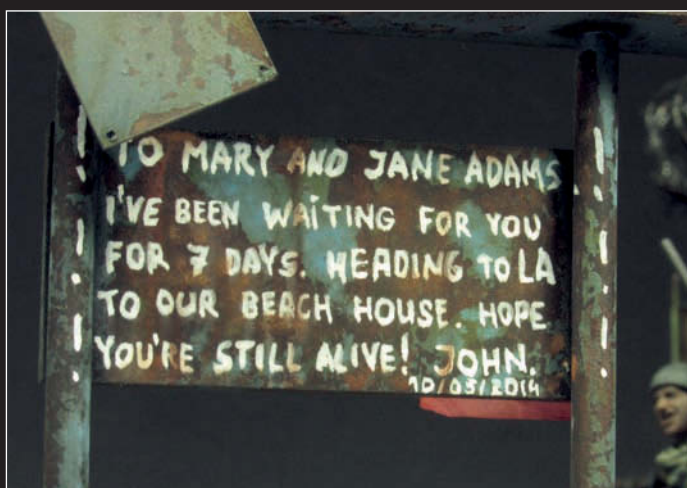 TO MARY AND JANE ADAMS
I'VE BEEN WAITING FOR YOU
FOR 7 DAYS. HEADING TO LA
TO OUR BEACH HOUSE. HOPE
YOU'RE STILL ALIVE! JOHN.
10/03/2014